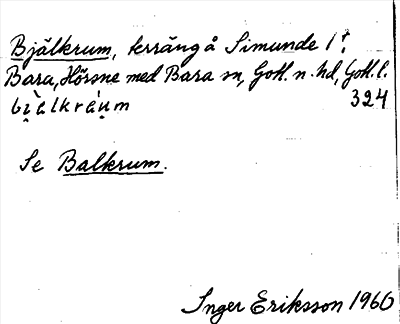 Bjälkrum, terräng å Simunde 1⁴,
Bara, Hörsne med Bara sn, Gotl. n. hd, Gotl. l.
bi̯èlkrèu̯m 324
Se Balkrum.
Inger Eriksson 1960